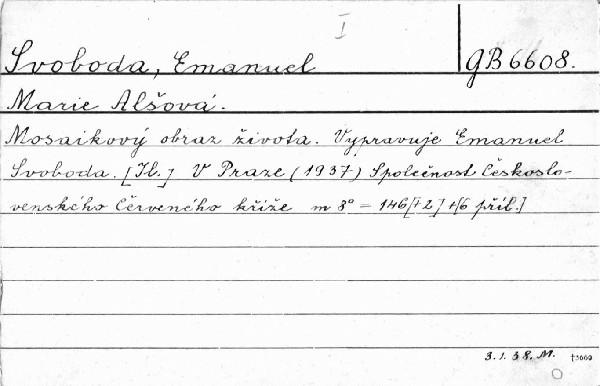 I
Svoboda, Emanuel GB 6608.
Marie Alšová.
Mosaikový obraz života. Vypravuje Emanuel
Svoboda. [Il.] V Praze (1937) Společnost Českoslo-
venského Červeného kříže m 8° = 146 [+2] +[6 příl.]
3. 1. 38. M.